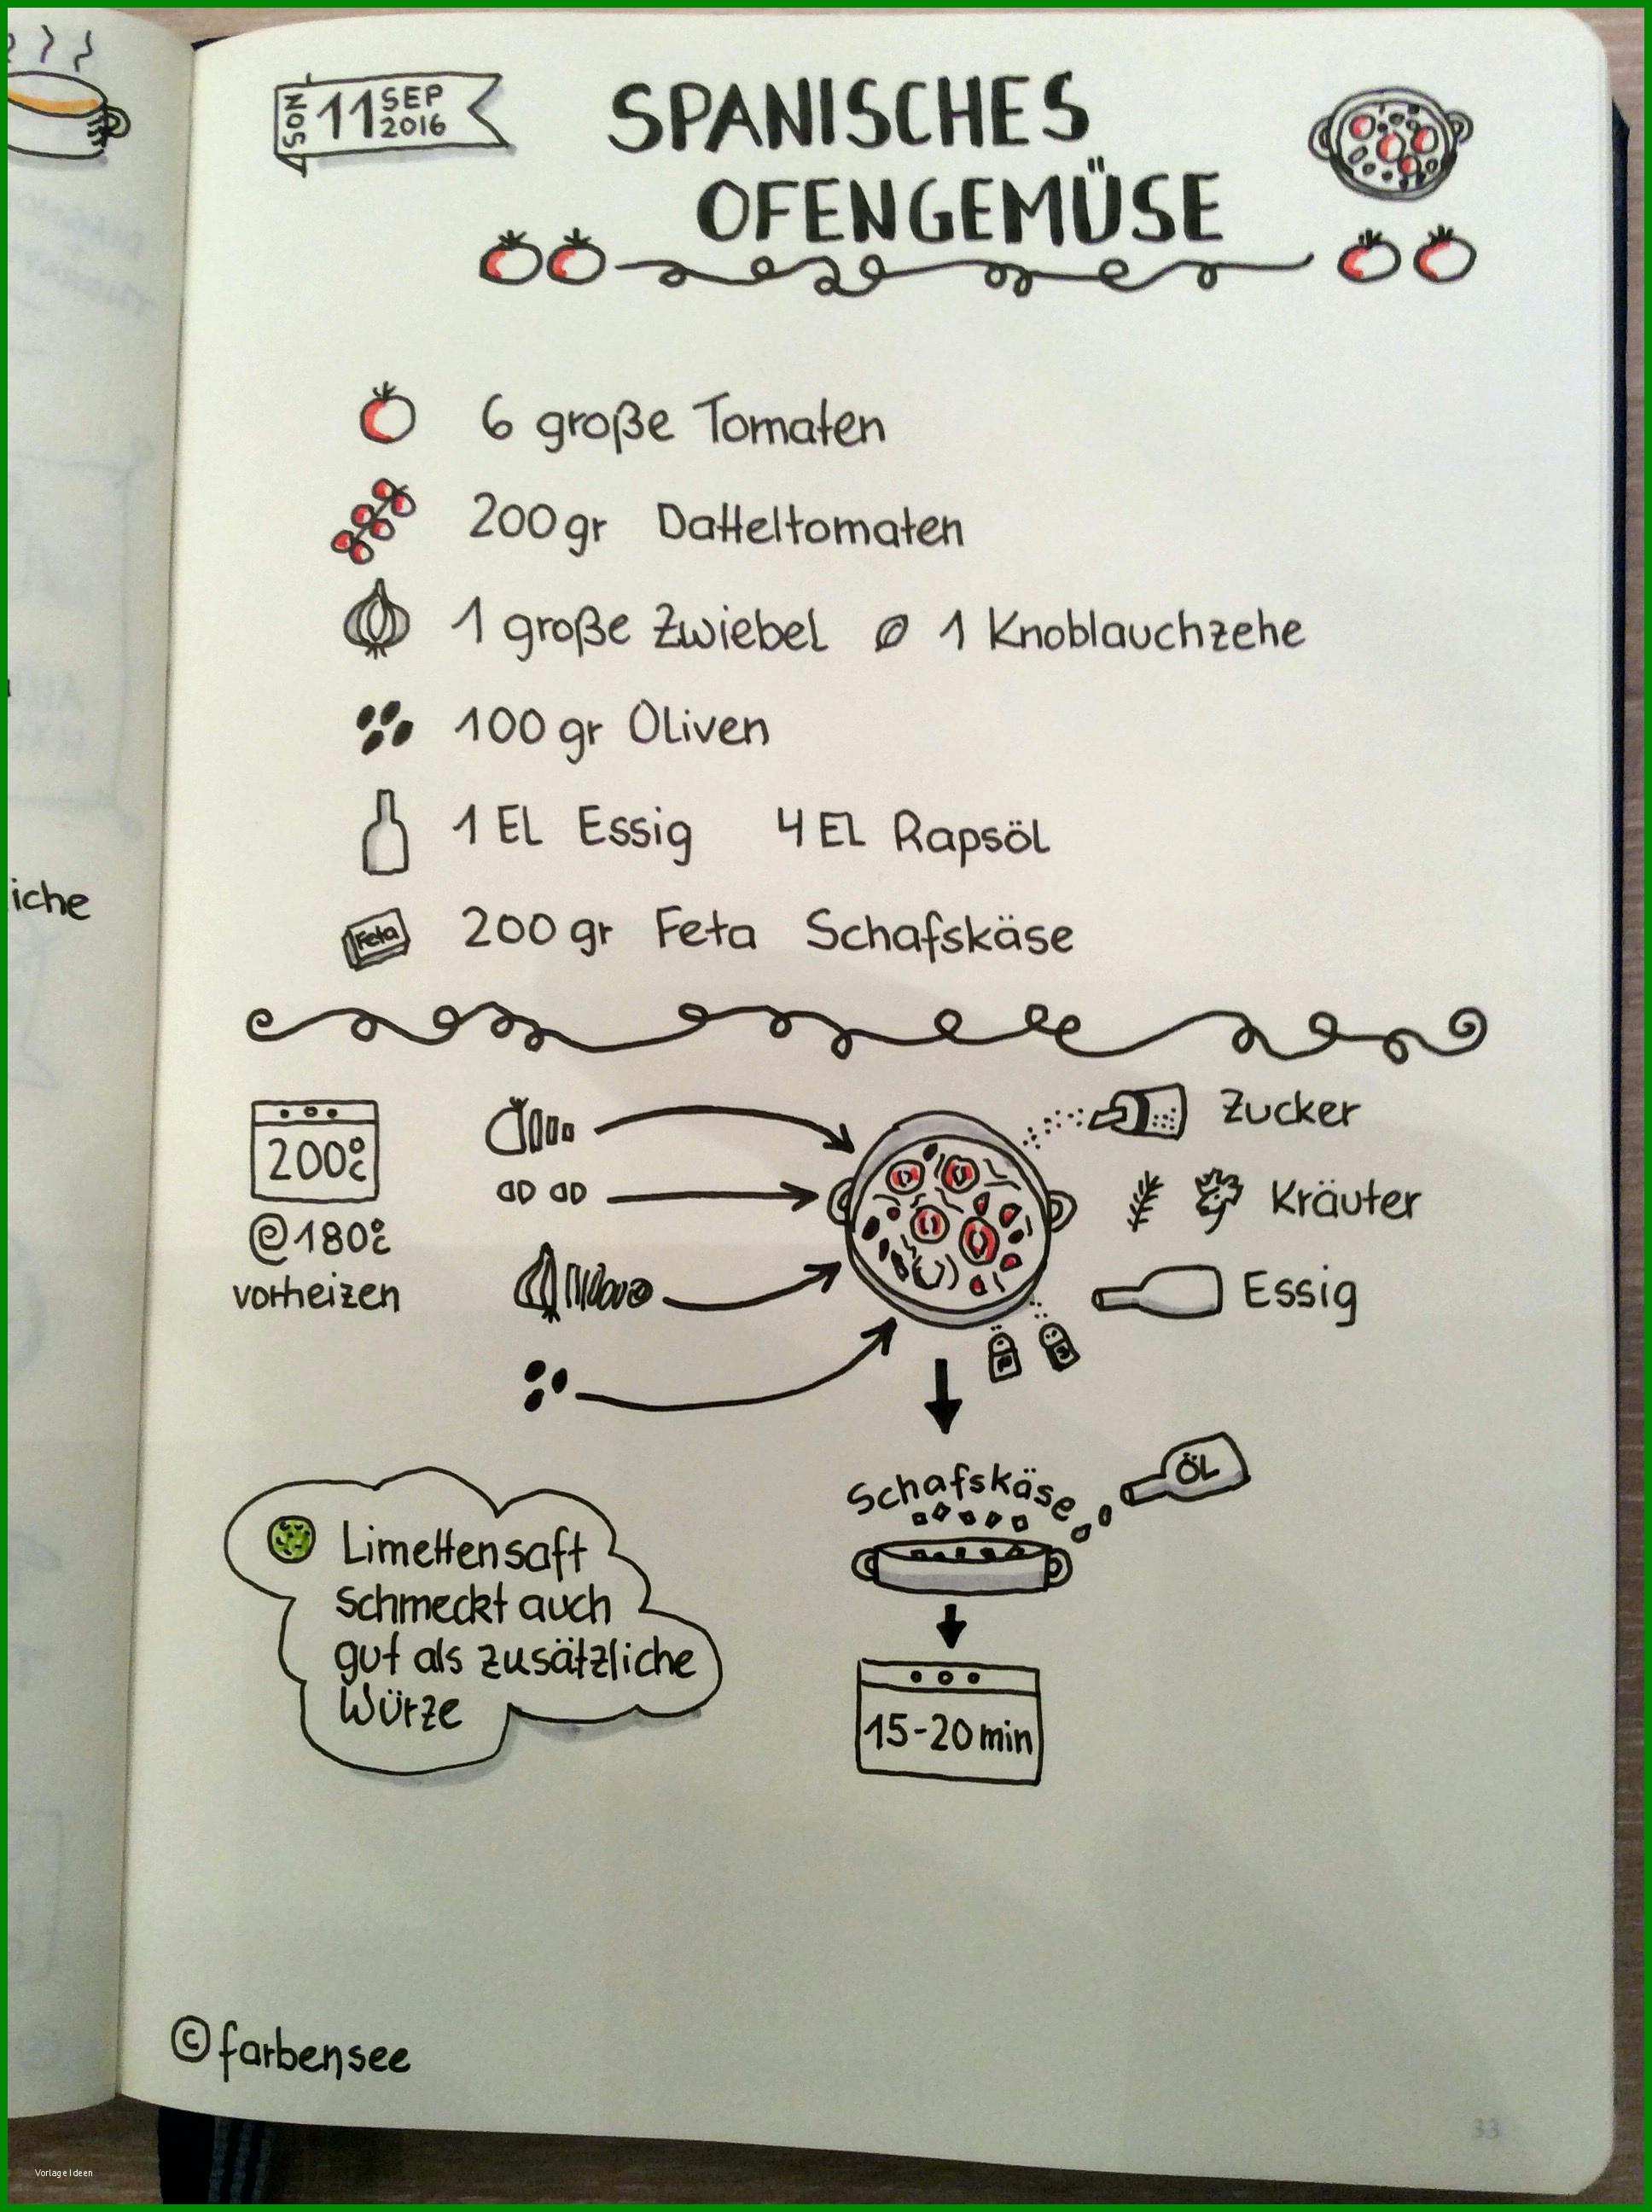 SON 11 SEP 2016
SPANISCHES
OFENGEMÜSE
6 große Tomaten
200gr Datteltomaten
1 große Zwiebel 1 Knoblauchzehe
100gr Oliven
1 EL Essig 4 EL Rapsöl
Feta 200gr Feta Schafskäse
iche
200°C
@180°C
vorheizen
Zucker
Kräuter
Essig
Schafskäse
ÖL
15-20min
Limettensaft
schmeckt auch
gut als zusätzliche
Würze
©farbensee
33
Vorlage Ideen